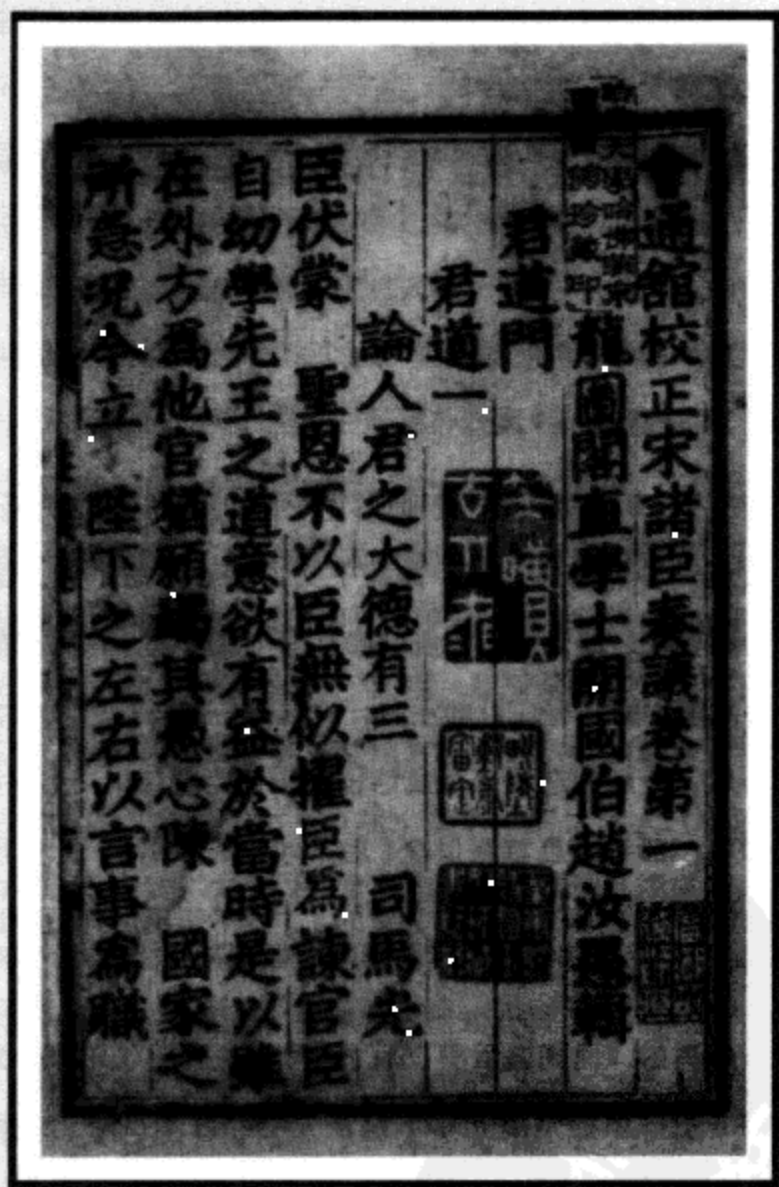 會通館校正宋諸臣奏議卷第一
龍圖閣直學士開國伯趙汝愚輯
君道門
君道一
論人君之大德有三 司馬光
臣伏蒙 聖恩不以臣無似擢臣爲諫官臣
自幼學先王之道意欲有益於當時是以雖
在外方爲他官猶願竭其愚心陳 國家之
所急況今立 陛下之左右以言事爲職